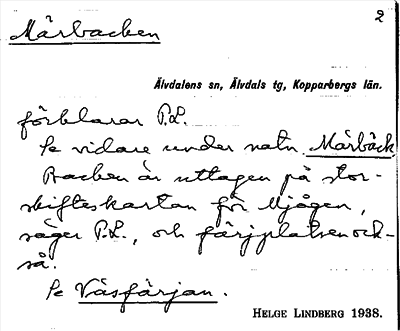 2
Mårbacken
Älvdalens sn, Älvdals tg, Kopparbergs län.
förklarar P.L.
Se vidare under natn Mårbäck.
Backen är uttagen på stor-
skifteskartan för Mjågen,
säger P.L., och färjplatsen ock-
så.
Se Våsfärjan.
HELGE LINDBERG 1938.